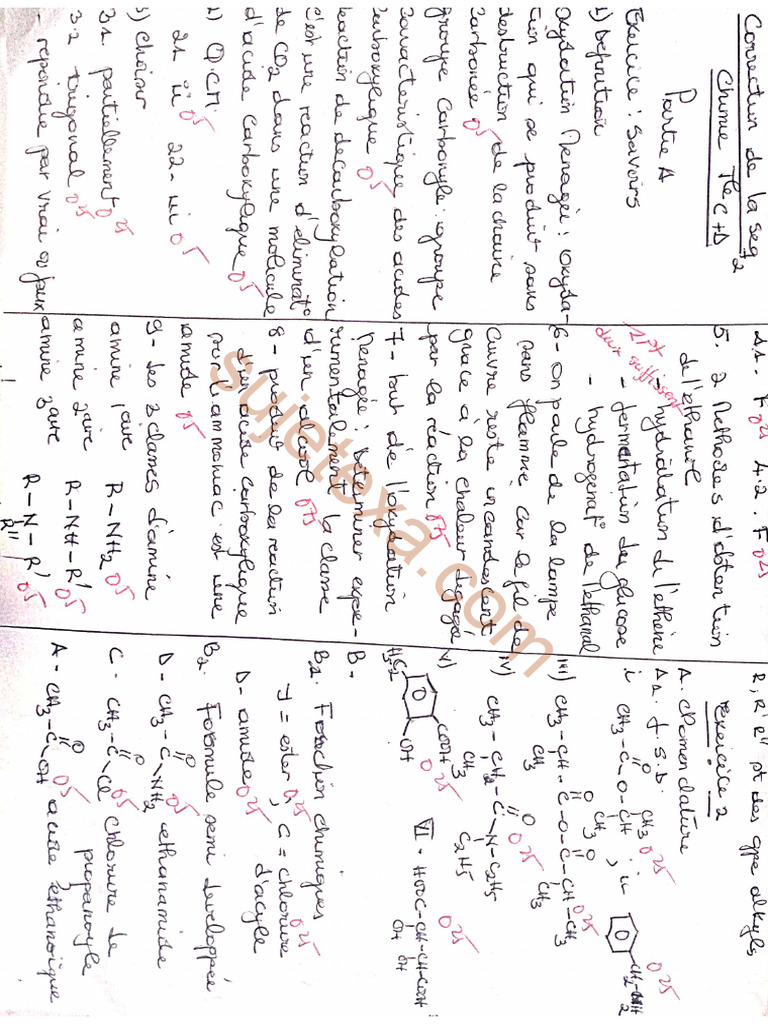 Correction de la seq 2
Chimie Tle C+D
Partie A
Exercice : Savoirs
1) Définition
Oxydation Menagée : Oxyda-
tion qui se produit sans
destruction de la chaine
carbonée 0,5
groupe carbonyle : groupe
caracteristique des acides
carboxylique 0,5
reaction de decarboxylation
c'est une reaction d'eliminat°
de CO2 dans une molecule
d'acide carboxylique 0,5
2) Q.C.M.
21 ii 0,5 22- iii 0,5
3) choisir
3.1 partiellement 0,25
3.2 trigonal 0,25
- repondre par vrai ou faux
4.1- F 0,25 4.2. F 0,25
5. 2 Methodes d'obtention
de l'ethanol
- hydratation de l'ethène
- fermentation du glucose
- hydrogenat° de l'ethanal
1pt deux suffisent
6- on parle de la lampe
sans flamme car le fil de
cuivre reste incandescent
grace à la chaleur degagée
par la réaction 0,75
7- but de l'oxydation
Menagée : Déterminer expe-
rimentalement la classe
d'un alcool 0,75
8- produit de la reaction
d'un acide carboxylique
sur l'ammoniac est une
amide 0,5
9- les 3 classes d'amine
amine 1aire R-NH2 0,5
amine 2aire R-NH-R' 0,5
amine 3aire R-N-R' 0,5
R''
R, R' R'' st des gpe alkyls
Exercice 2
A. Nomenclature
A1. f.S.D.
i CH3-C-O-CH
O
CH3 0,25
, ii
CH2-NH2
0,25
iii) CH3-CH-C-O-C-CH-CH3
CH3
O
O
CH3
CH3
0,25
iv) CH3-CH2-C-N-C2H5
O
C2H5
0,25
v)
COOH
OH
0,25
VI - HOOC-CH-CH-COOH
OH
OH
0,25
B-
B1. Fonction chimiques
D- amide 0,25
d'acyle
B2 Formule semi developpée
D- CH3-C-NH2 0,5 ethanamide
O
C- CH3-C-Cl 0,5 chlorure de
O
propanoyle
A- CH3-C-OH 0,5 acide ethanoïque
O
sujetexa.com